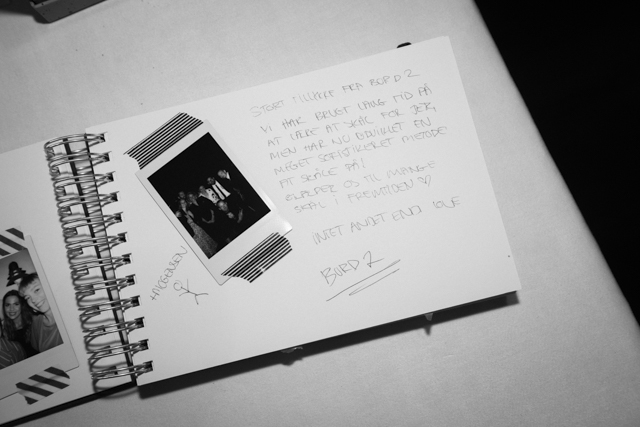 STORT TILLYKKE FRA BORD 2
VI HAR BRUGT LANG TID PÅ
AT LÆRE AT SKÅL FOR JER,
MEN HAR NU UDVIKLET EN
MEGET SOFISTIKERET METODE
AT SKÅLE PÅ!
HJÆLPER OS TIL MANGE
SKÅL I FREMTIDEN ♡
INTET ANDET END LOVE
BORD 2